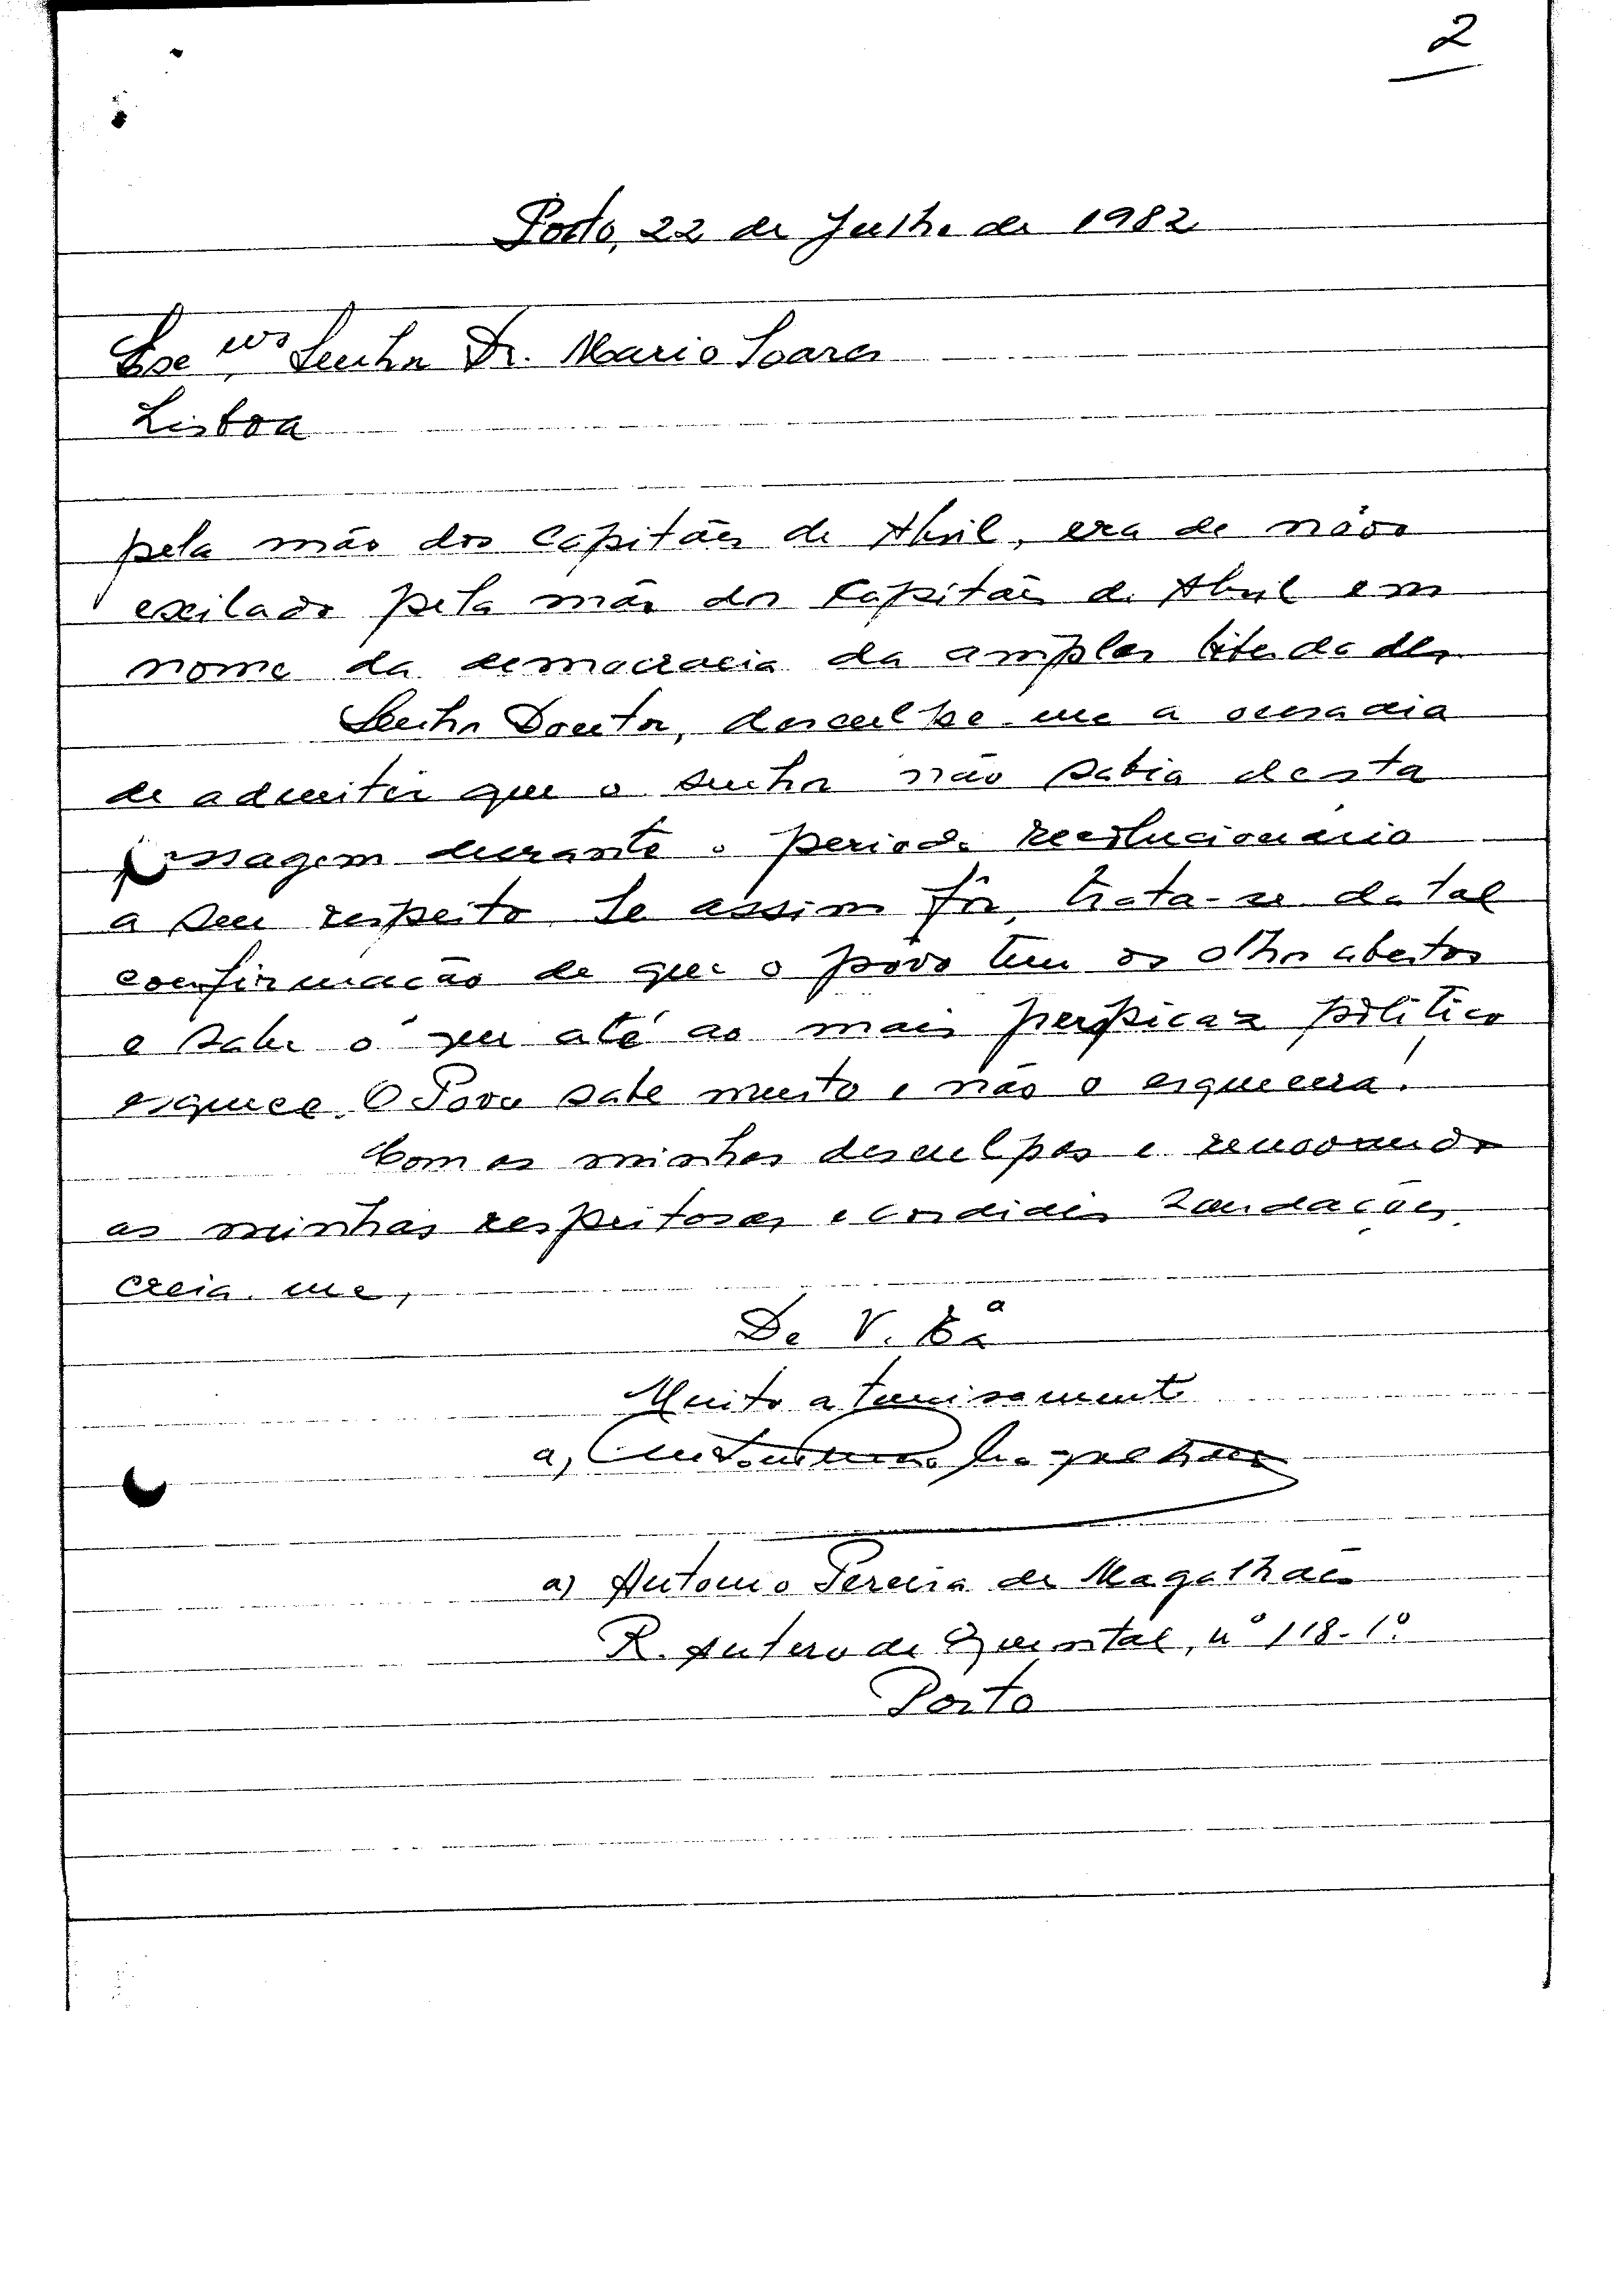 2
Porto, 22 de Julho de 1982
Exc mo Senhor Dr. Mario Soares
Lisboa
pela mão dos Capitães de Abril, era de novo
exilado pela mão dos Capitães de Abril em
nome da democracia da amplas liberdades
Senhor Doutor, desculpe-me a ousadia
de admitir que o senhor não sabia desta
passagem durante o periodo revolucionário
a seu respeito Se assim fôr, trata-se da tal
confirmação de que o povo tem os olhos abertos
e sabe o que até ao mais perspicaz politico
esquece. O Povo sabe muito e não o esquecerá!
Com as minhas desculpas e renovando
as minhas respeitosas e cordiais saudações
creia-me,
De V. Exª
Muito atenciosamente
a) Antonio Magalhães
a) Antonio Pereira de Magalhães
R. Antero de Quental, nº 118-1º
Porto